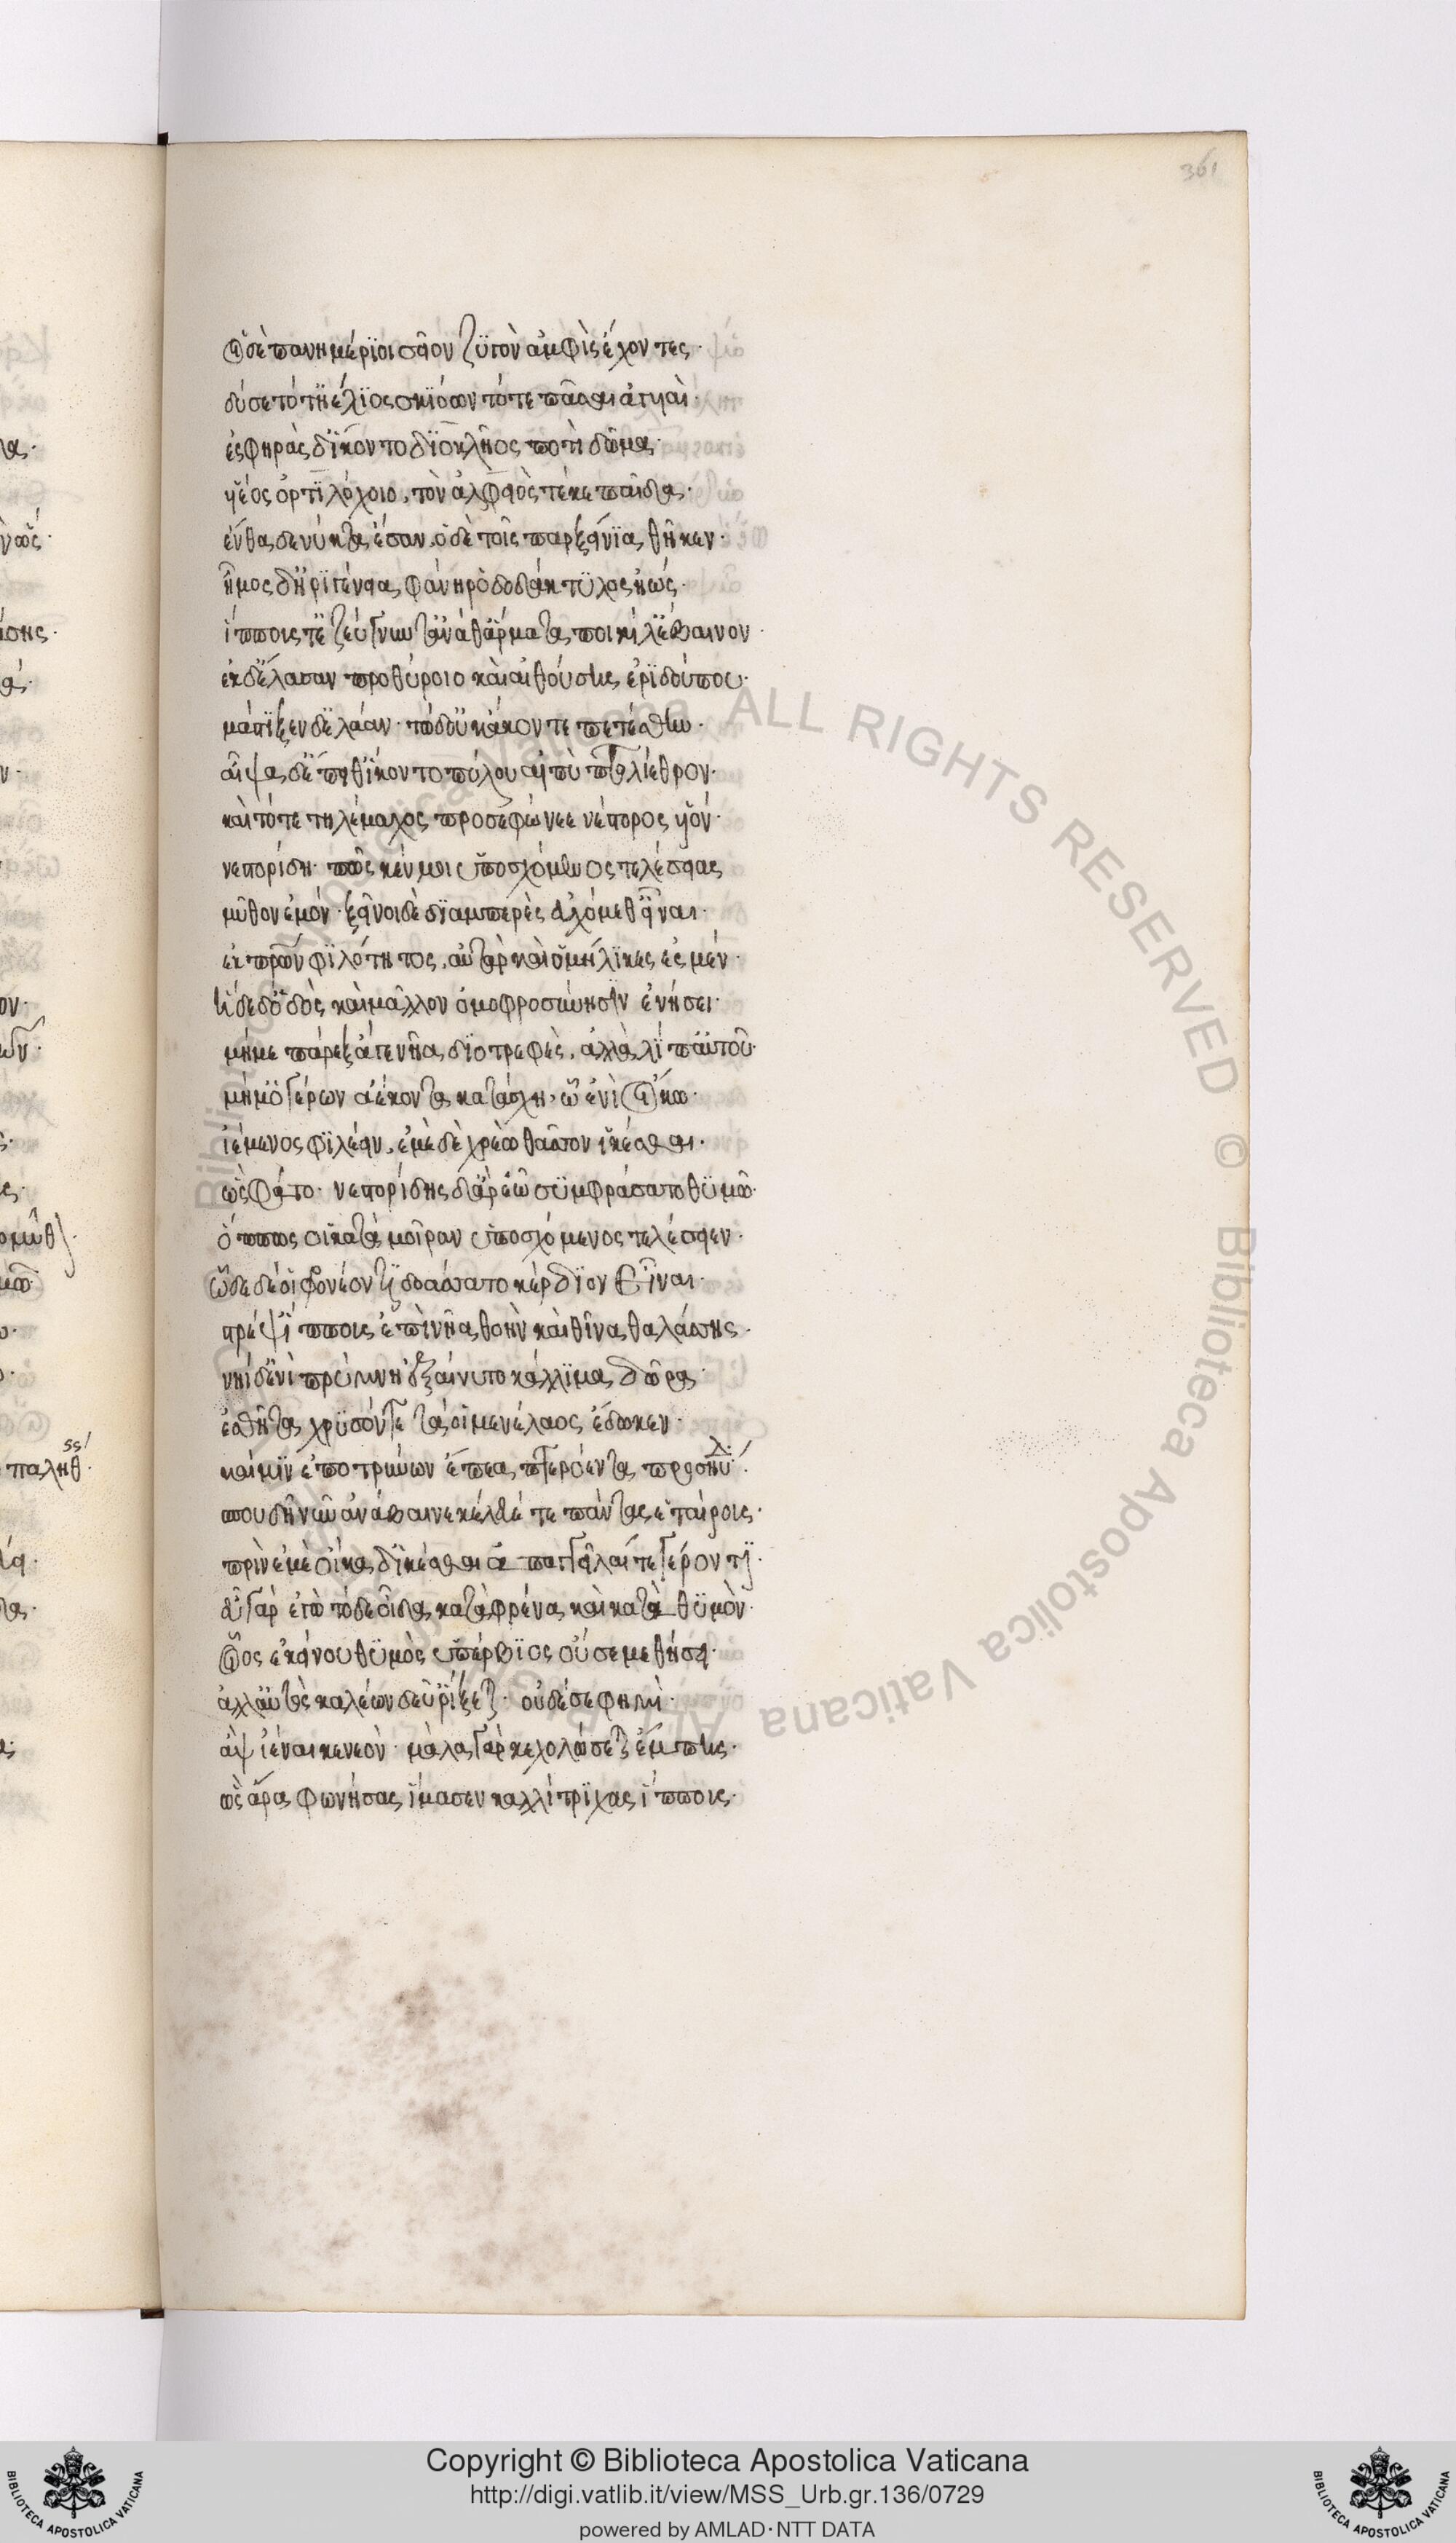 361
οἱ δὲ πανημέριοι σεῖον ζυγὸν ἀμφὶς ἔχοντες·
δύσετό τ' ἠέλιος σκιόωντό τε πᾶσαι ἀγυιαὶ·
ἐς φηρὰς δ' ἵκοντο διοκλῆος ποτὶ δῶμα·
υἱέος ὀρτιλόχοιο, τὸν ἀλφειὸς τέκε παῖδα·
ἔνθα δὲ νύκτα ἔσαν, ὁ δὲ τοῖς παρ ξείνια θῆκεν·
ἦμος δ' ἠριγένεια φάνη ῥοδοδάκτυλος ἠώς·
ἵππους τε ζεύγνυντ' ἀνά θ' ἅρματα ποικίλ' ἔβαινον·
ἐκ δ' ἔλασαν προθύροιο καὶ αἰθούσης ἐριδούπου·
μάστιξεν δ' ἐλάαν· τὼ δ' οὐκ ἄκοντε πετέσθην·
αἶψα δ' ἔπειθ' ἵκοντο πύλου αἰπὺ πτολίεθρον·
καὶ τότε τηλέμαχος προσεφώνεε νέστορος υἱόν·
νεστορίδη· πῶς κέν μοι ὑποσχόμενος τελέσειας
μῦθον ἐμόν· ξεῖνοι δὲ διαμπερὲς εὐχόμεθ' εἶναι·
ἐκ πρων φιλότητος, αὐτὰρ καὶ ὁμήλικές ἐσμέν·
ἥδε δ' ὁδὸς καὶ μᾶλλον ὁμοφροσύνησιν ἐνήσει·
μή με πάρεξ ἄγε νῆα διοτρεφὲς, ἀλλὰ λίπ' αὐτοῦ·
μή μ' ὁ γέρων ἀέκοντα κατάσχη, ᾧ ἐνὶ οἴκω·
ἱέμενος φιλέειν, ἐμὲ δὲ χρεὼ θᾶσσον ἱκέσθαι·
ὣς φάτο· νεστορίδης δ' ἄρ ἑῶ συμφράσατο θυμῶ·
ὅππως οἱ κατὰ μοῖραν ὑποσχόμενος τελέσειεν·
ὧδε δέ οἱ φρονέοντι δοάσσατο κέρδιον εἶναι·
στρέψ' ἵππους ἐπὶ νῆα θοὴν καὶ θῖνα θαλάσσης·
νηὶ δ' ἐνὶ πρύμνη ἐξαίνυτο κάλλιμα δῶρα
ἐσθῆτα χρυσόν τε τά οἱ μενέλαος ἔδωκεν·
καί μιν ἐποτρύνων ἔπεα πτερόεντα προσηύ·
σπουδῆ νῦν ἀνάβαινε κέλευέ τε πάντας ἑταίρους·
πρὶν ἐμὲ οἴκαδ' ἱκέσθαι ἀπαγγεῖλαί τε γέροντι·
εὖ γὰρ ἐγὼ τόδε οἶδα κατὰ φρένα καὶ κατὰ θυμὸν·
οἷος ἐκείνου θυμὸς ὑπέρβιος οὔ σε μεθήσει·
ἀλλ' αὐτὸς καλέων δεῦρ' ἵξεται· οὐδέ σέ φημι·
ἂψ ἰέναι κενεὸν· μάλα γὰρ κεχολώσεται ἔμπης·
ὣς ἄρα φωνήσας ἵμασεν καλλίτριχας ἵππους·
Copyright © Biblioteca Apostolica Vaticana
http://digi.vatlib.it/view/MSS_Urb.gr.136/0729
powered by AMLAD·NTT DATA